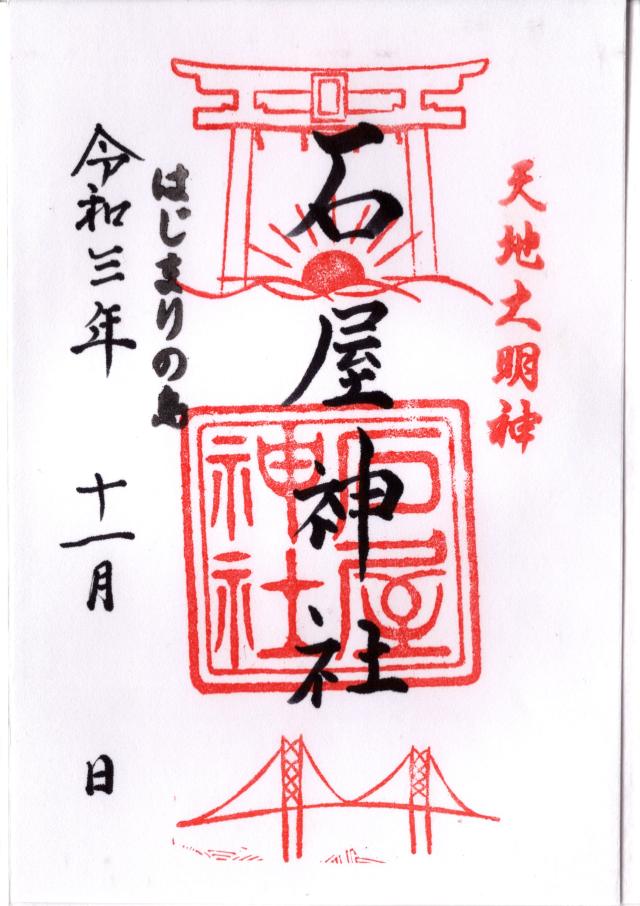 天地大明神
石屋神社
石屋神社
はじまりの島
令和三年 十一月 日